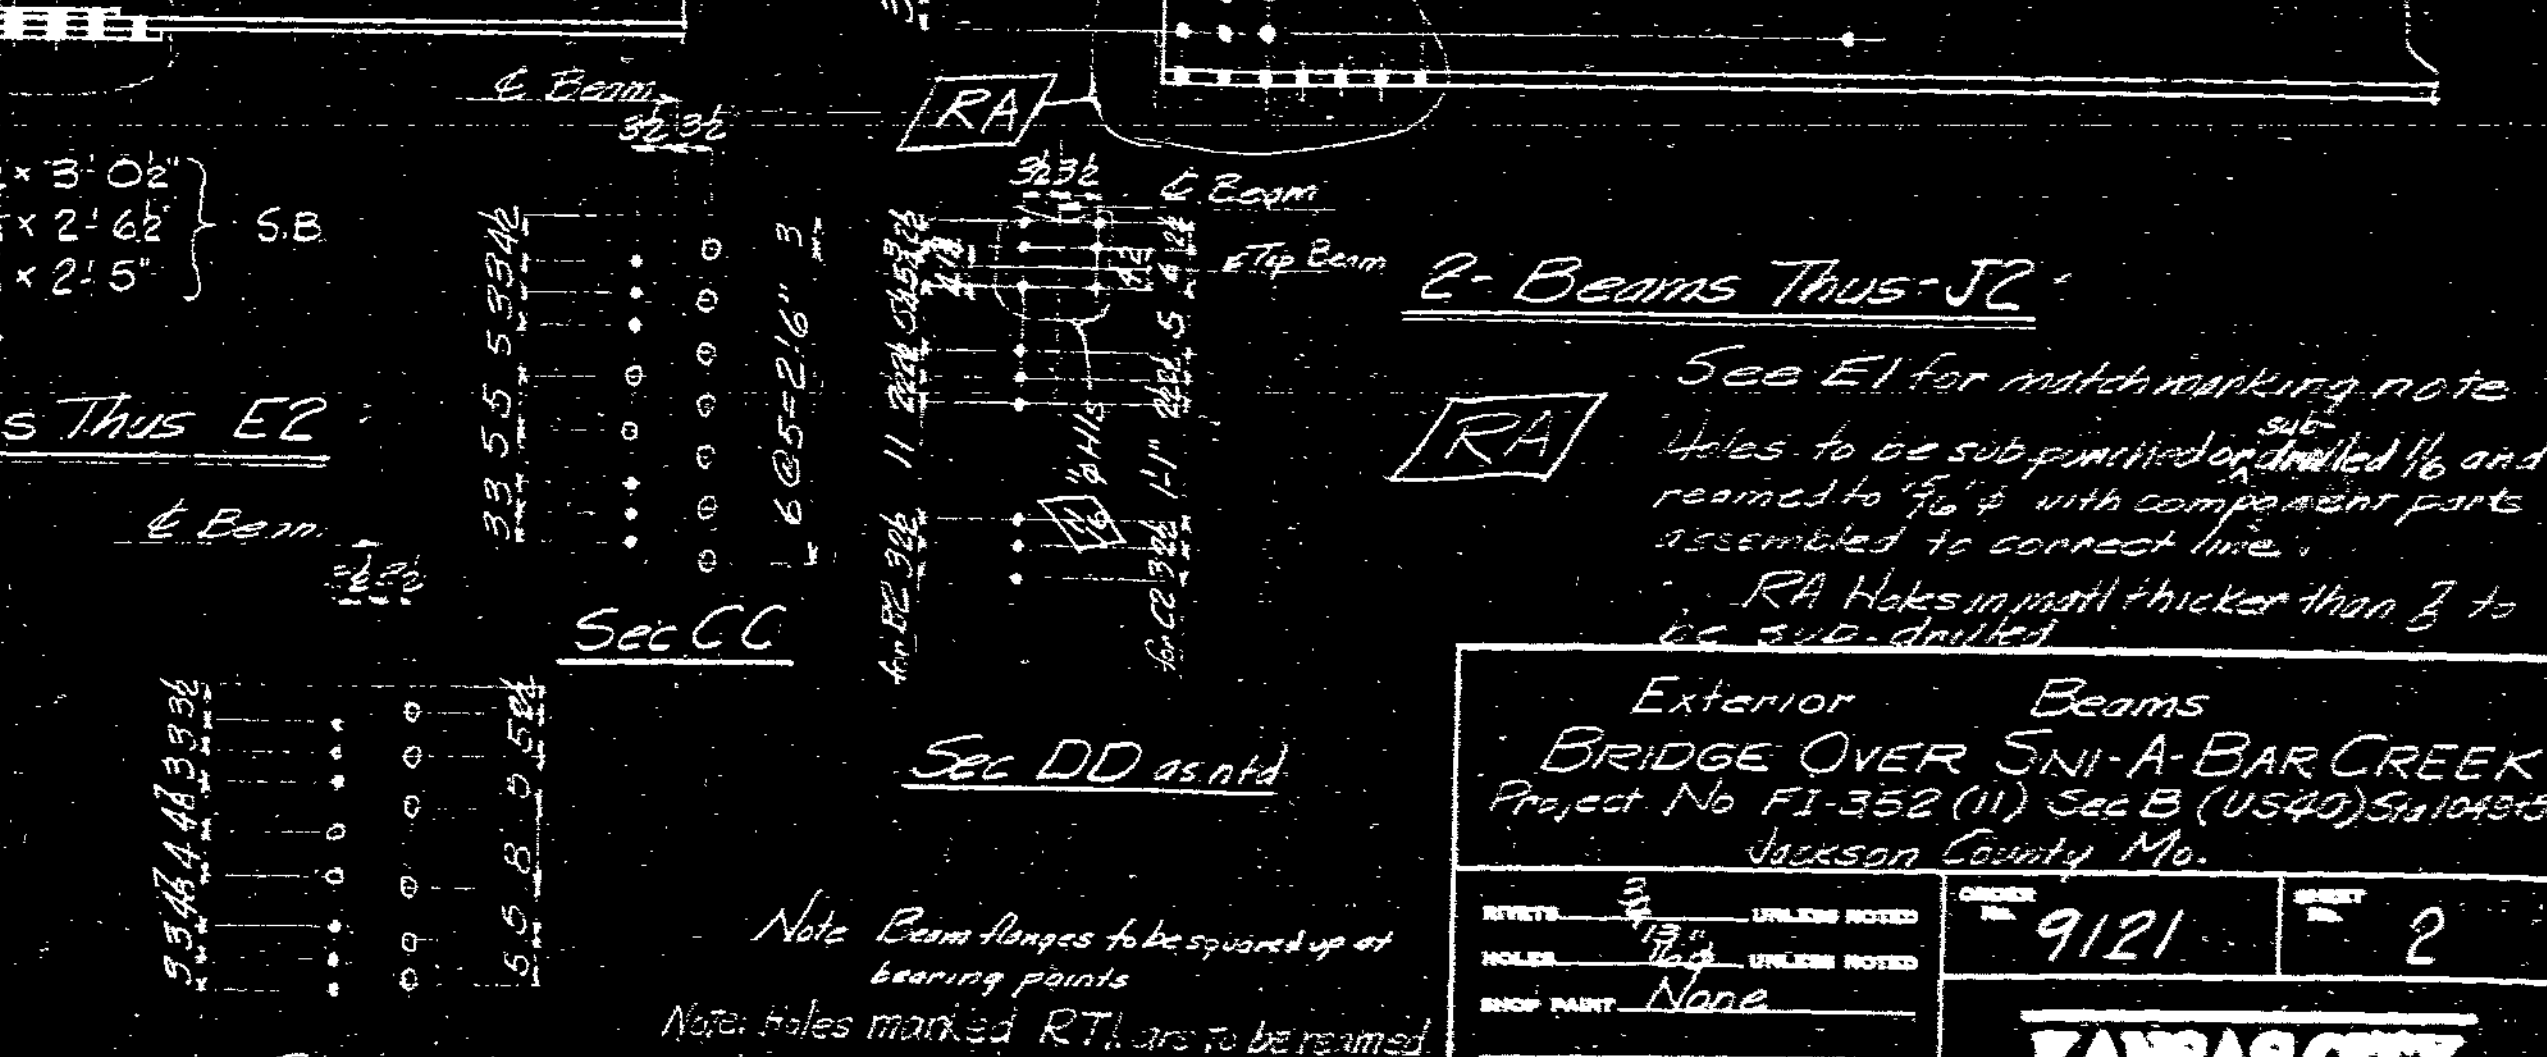 ₵ Beam
3½ 3½
RA
x 3'-0½"
x 2'-6½"
x 2'-5"
S.B.
3½ 3½
₵ Beam
₵ Top Beam
2- Beams Thus-J2
See E1 for matchmarking note
RA
Holes to be subpunched or sub-drilled 11/16 and
reamed to 15/16"ø with component parts
assembled to connect line.
RA Holes in matl thicker than 7/8 to
be sub-drilled
s Thus E2
₵ Beam
3 3 5 5 5 5 3 3 4½
6@5=2'-6" 3
1"ø Hls
11
1'-1"
for B2
for C2
Sec CC
Sec DD as ntd
Note Beam flanges to be squared up at
bearing points
Note: Holes marked RTL are to be reamed
Exterior Beams
BRIDGE OVER SNI-A-BAR CREEK
Project No FI-352 (11) Sec B (US40) Sta
Jackson County Mo.
RIVETS 3/4 UNLESS NOTED
HOLES 13/16"ø UNLESS NOTED
SHOP PAINT None
ORDER No. 9121
SHEET No. 2
KANSAS CITY